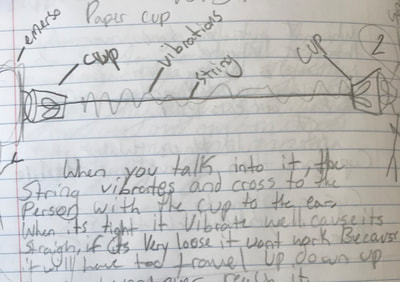 Paper cup
cup
vibrations
string
cup
2
When you talk into it, the
String vibrates and cross to the
Person with the cup to the ear,
When its tight it vibrate well cause its
straigh, if its very loose it wont work Because
it will have too travel up down up
really it